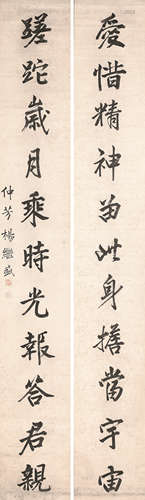 愛惜精神留此身擔當宇宙
蹉跎歲月乘時光報答君親
仲芳楊繼盛